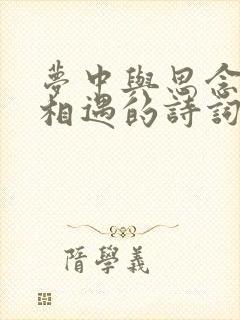 夢中與思念
相遇的詩詞
隋學義